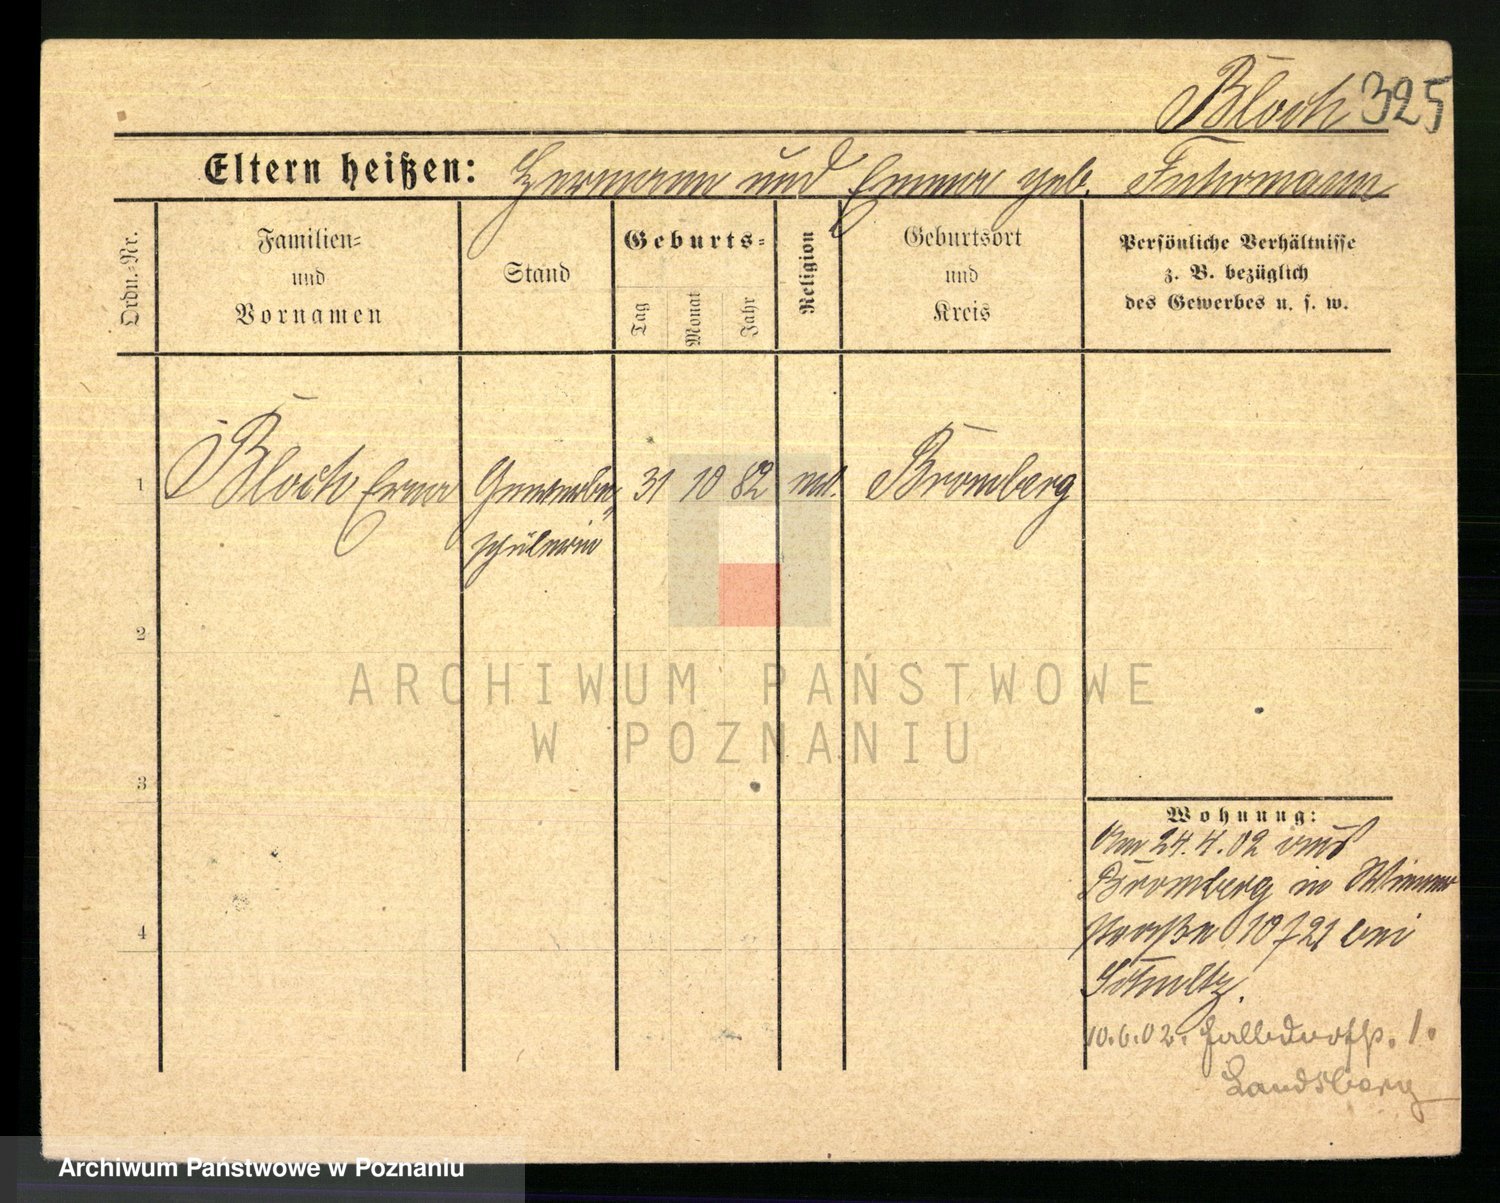 Bloch 325
Eltern heißen: Hermann und Emma geb. Fuhrmann
Ordn.-Nr.
Familien-
und
Vornamen
Stand
Geburts-
Tag
Monat
Jahr
Religion
Geburtsort
und
Kreis
Persönliche Verhältnisse
z. B. bezüglich
des Gewerbes u. s. w.
1 Bloch Erna Gewerbe- 31 10 82 Bromberg
schülerin
2
3
4
ARCHIWUM PAŃSTWOWE
W POZNANIU
Wohnung:
Am 24.4.02 aus
Bromberg n
straße 10 bei
Schultz.
10.6.02. Halbdorfstr. 1.
Landsberg
Archiwum Państwowe w Poznaniu